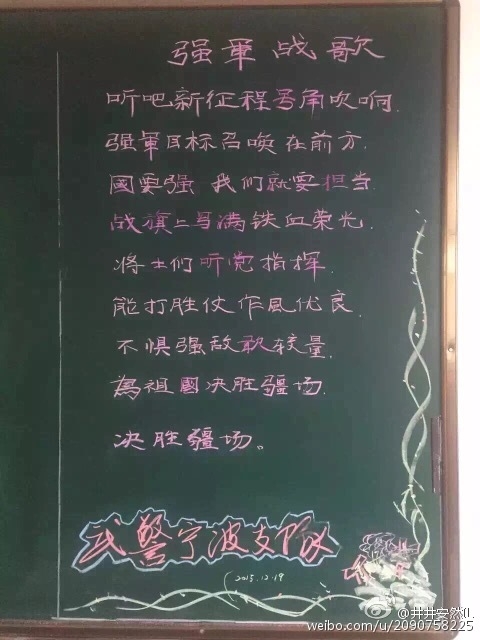 强軍战歌
听吧新征程号角吹响.
强軍目标召唤在前方.
國要强 我们就要担当
战旗上写满铁血荣光.
将士们听党指挥.
能打胜仗作風优良.
不惧强敌敢较量.
為祖國决胜疆场.
决胜疆场。
武警宁波支队
2015.12.19
@井井安然
weibo.com/u/2090758225